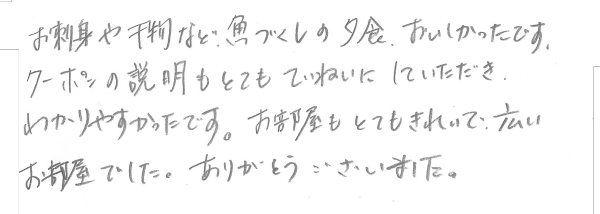 お刺身や干物など、魚づくしの夕食、おいしかったです。
クーポンの説明もとてもていねいにしていただき、
わかりやすかったです。お部屋もとてもきれいで、広い
お部屋でした。ありがとうございました。